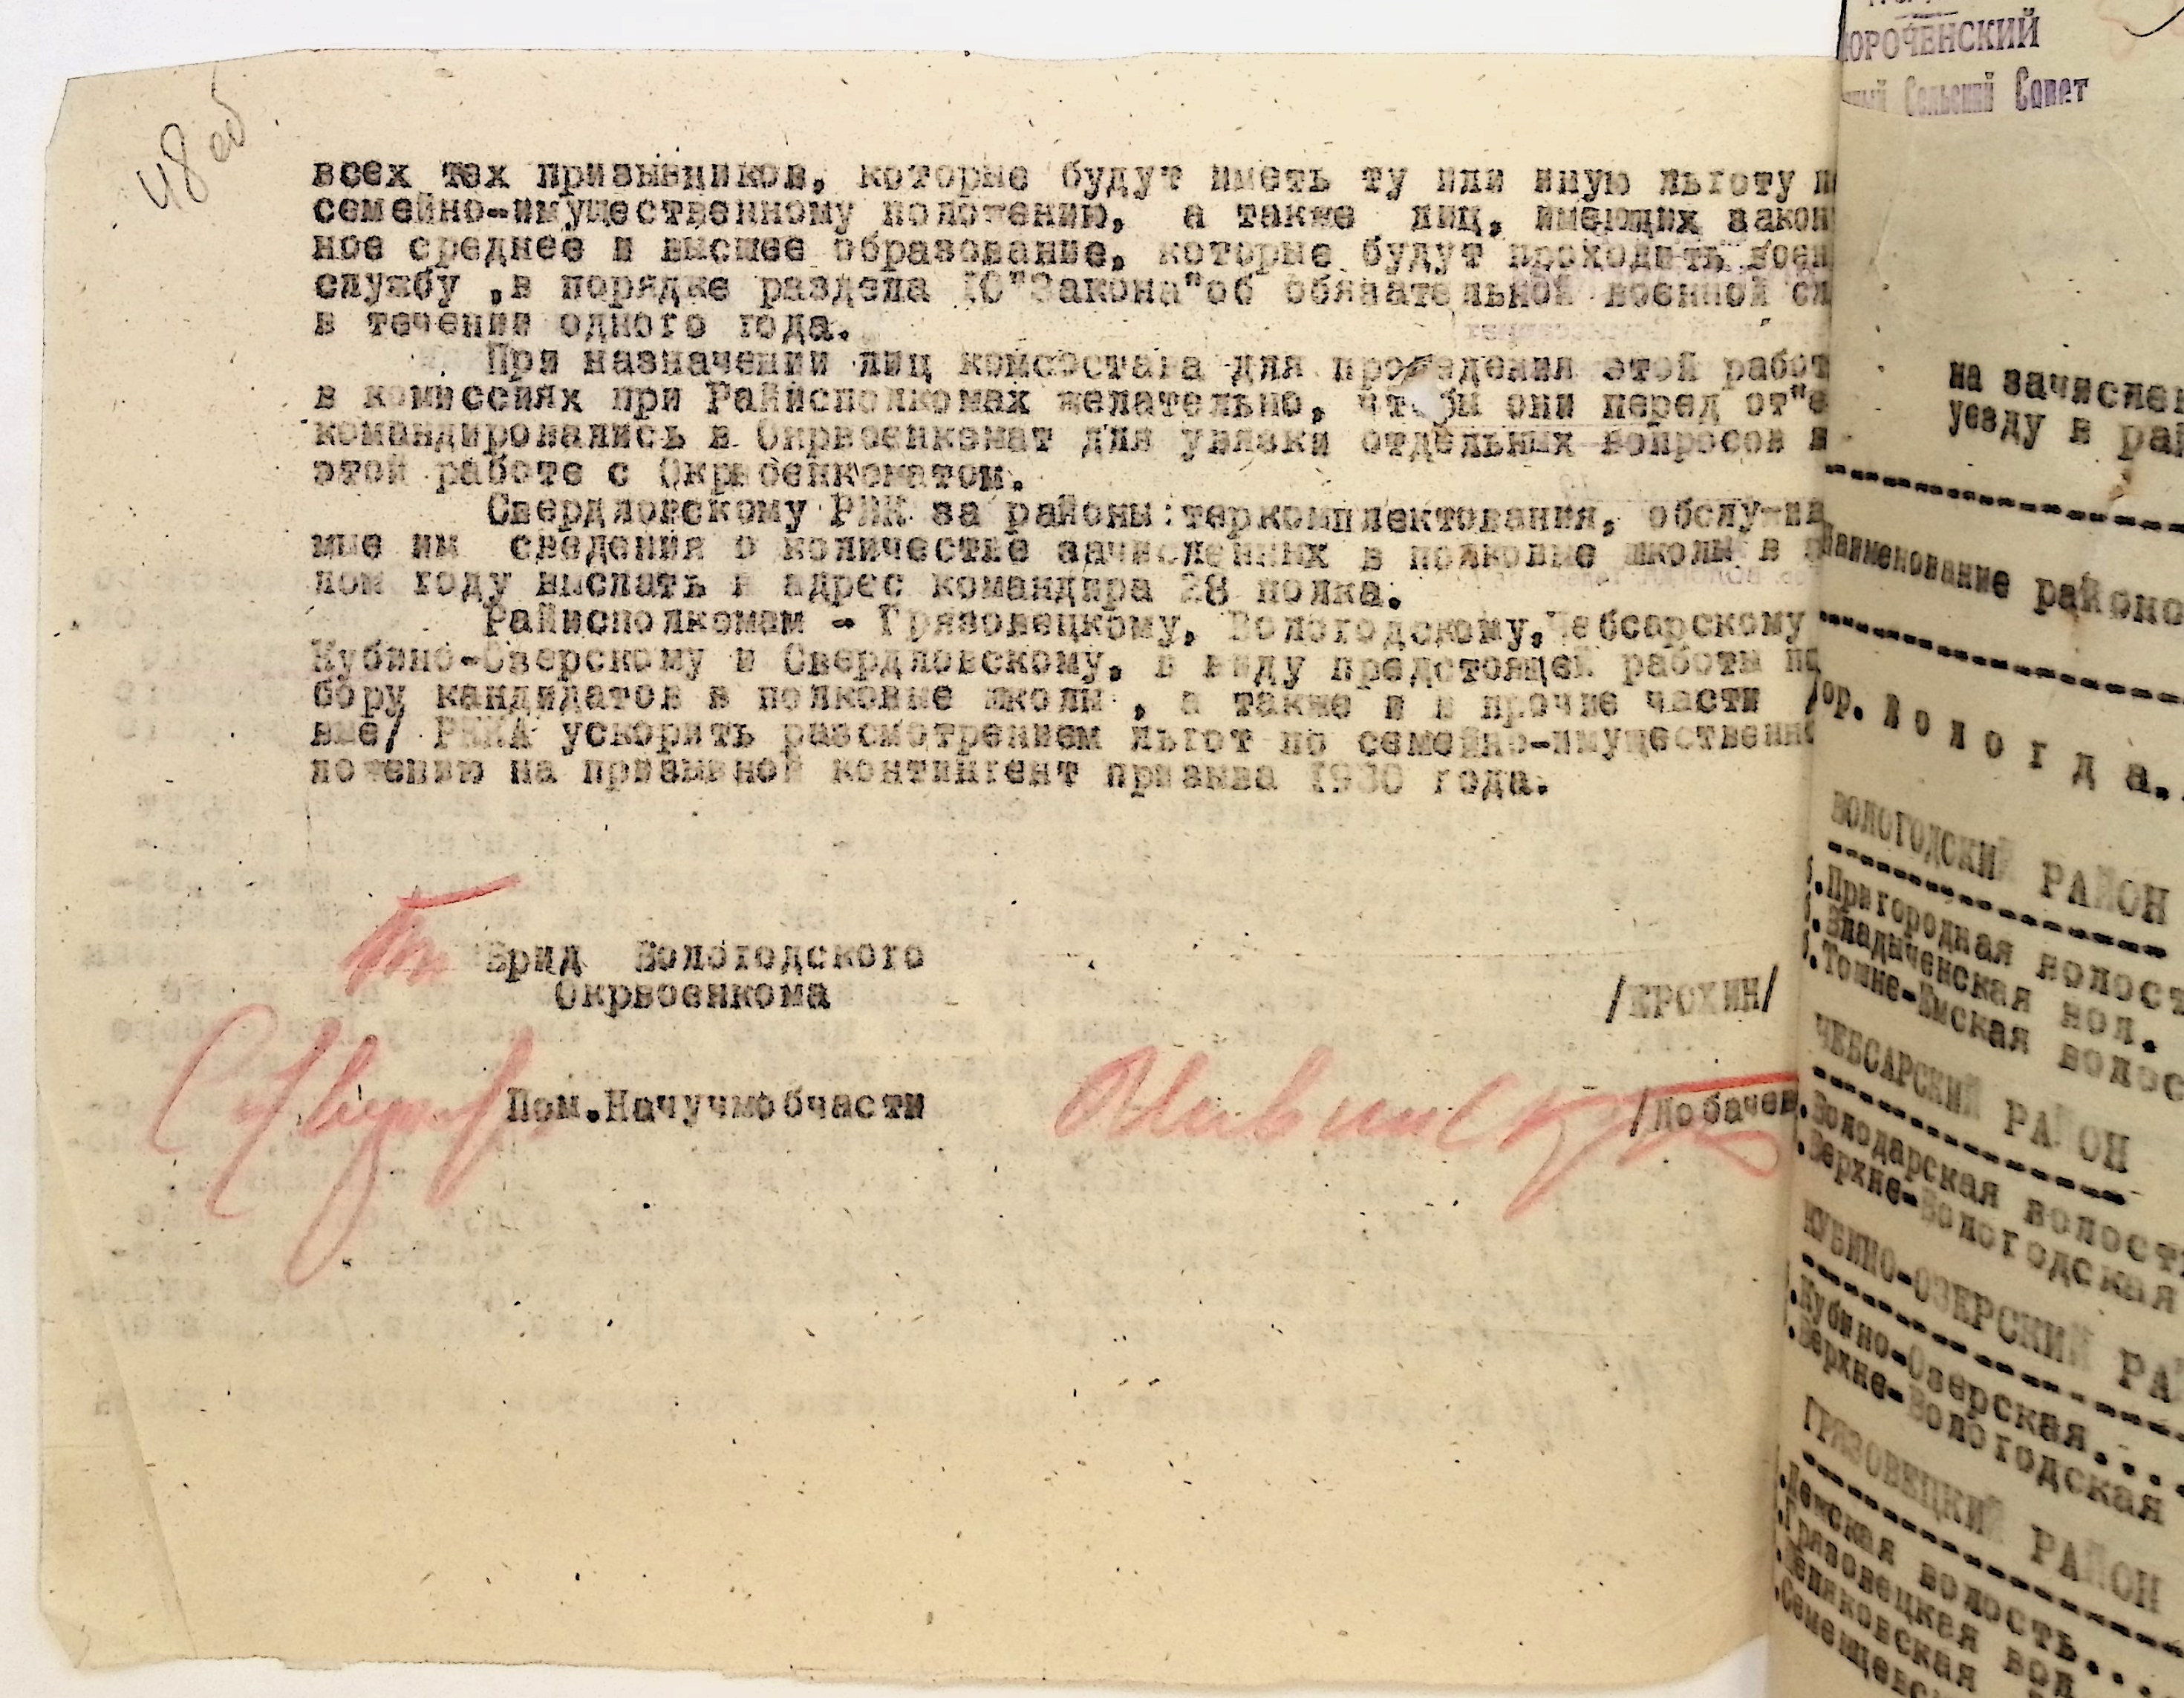 48 об
всех тех призывников, которые будут иметь ту или иную льготу п
семейно-имущественному положению, а также лиц, имеющих закон
ное среднее и высшее образование, которые будут проходить воен
службу ,в порядке раздела 10"Закона"об обязательной военной сл
в течении одного года.
При назначении лиц комсостава для проведения этой работ
в комиссиях при Райисполкомах желательно, чтобы они перед от"е
командировались в Окрвоенкомат для увязки отдельных вопросов в
этой работе с Окрвоенкоматом.
Свердловскому РИК за районы:теркомплектования, обслу-ва
мые им сведения о количестве зачисленных в полковые школы в п
лом году выслать в адрес командира 28 полка.
Райисполкомам - Грязовецкому, Вологодскому,Чебсарскому
Кубино-Озерскому и Свердловскому, в виду предстоящей работы по
бору кандидатов в полковые школы , а также и в прочие части /
вые/ РККА ускорить рассмотрением льгот по семейно-имущественно
ложению на призывной контингент призыва 1930 года.
Врид Вологодского
Окрвоенкома
/КРОХИН/
Пом.Начучмобчасти
/Лобачев
ЮРОЧЕНСКИЙ
Сельский Совет
на зачислен
уезду в рай
Наименование районо
Гор. В о л о г д а.
ВОЛОГОДСКИЙ РАЙОН
.Пригородная волост
.Владыченская вол.
.Тошне-Емская волос
ЧЕБСАРСКИЙ РАЙОН
.Володарская волость
.Верхне-Вологодская
КУБИНО-ОЗЕРСКИЙ РА
.Кубино-Озерская....
.Верхне-Вологодская
ГРЯЗОВЕЦКИЙ РАЙОН
.Лежская волость...
.Грязовецкая вол